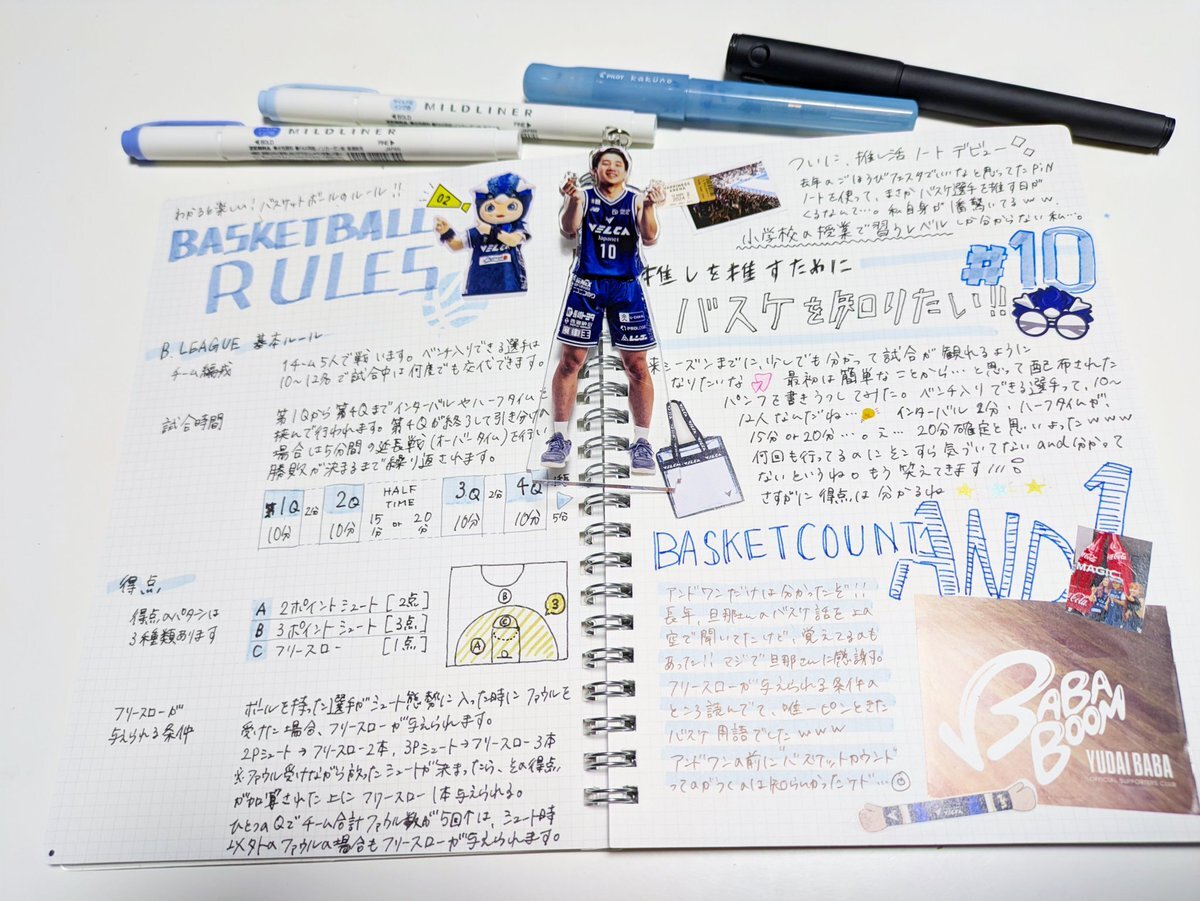 MILDLINER
BOLD
FINE
JAPAN
MILDLINER
BOLD
FINE
PILOT kakuno
わかると楽しい!バスケットボールのルール!!
BASKETBALL
RULES
02
B.LEAGUE 基本ルール
チーム編成
1チーム5人で戦います。ベンチ入りできる選手は
10〜12名で試合中は何度でも交代できます。
試合時間
第1Qから第4Qまでインターバルやハーフタイムを
挟んで行われます。第4Qが終了して引き分けの
場合は5分間の延長戦(オーバータイム)を行い
勝敗が決まるまで繰り返されます。
第1Q 2分 2Q HALF TIME 3Q 2分 4Q
10分 10分 15分 or 20分 10分 10分 5分
得点
得点のパターンは
3種類あります
A 2ポイントシュート [2点]
B 3ポイントシュート [3点]
C フリースロー [1点]
B
3
C
A
フリースローが
与えられる条件
ボールを持った選手がシュート態勢に入った時にファウルを
受けた場合、フリースローが与えられます。
2Pシュート→フリースロー2本、3Pシュート→フリースロー3本
※ファウル受けながら放ったシュートが決まったら、その得点
が加算された上にフリースロー1本与えられる。
ひとつのQでチーム合計ファウル数が5回↑は、シュート時
以外のファウルの場合もフリースローが与えられます。
VELCA
Japanet
10
ついに、推し活ノートデビュー
去年のごほうびフェスタでいいなと思ってたPiN
ノートを使って、まさかバスケ選手を推す日が
くるなんて…。私自身が1番驚いてるww
小学校の授業で習うレベルしか分からない私…。
#10
推しを推すために
バスケを知りたい!!
来シーズンまでに少しでも分かって試合が観れるように
なりたいな 最初は簡単なことから…と思って配布された
パンフを書きうつしてみた。ベンチ入りできる選手って、10〜
12人なんだね… インターバル2分、ハーフタイムが、
15分or20分…。え…20分確定と思いよったwww
何回も行ってるのにそこすら気づいてないand分かって
ないというね。もう笑えてきます
さすがに得点は分かるね
BASKETCOUNT
AND1
アンドワンだけは分かったぞ!!
長年、旦那さんのバスケ話を上の
空で聞いてたけど、覚えてるのも
あった!!マジで旦那さんに感謝。
フリースローが与えられる条件の
ところ読んでて、唯一ピンときた
バスケ用語でしたwww
アンドワンの前にバスケットカウンド
ってのがつくのは知らんかったケド…
Coca-Cola
MAGIC
BABA
BOOM
YUDAI BABA
OFFICIAL SUPPORTERS CLUB